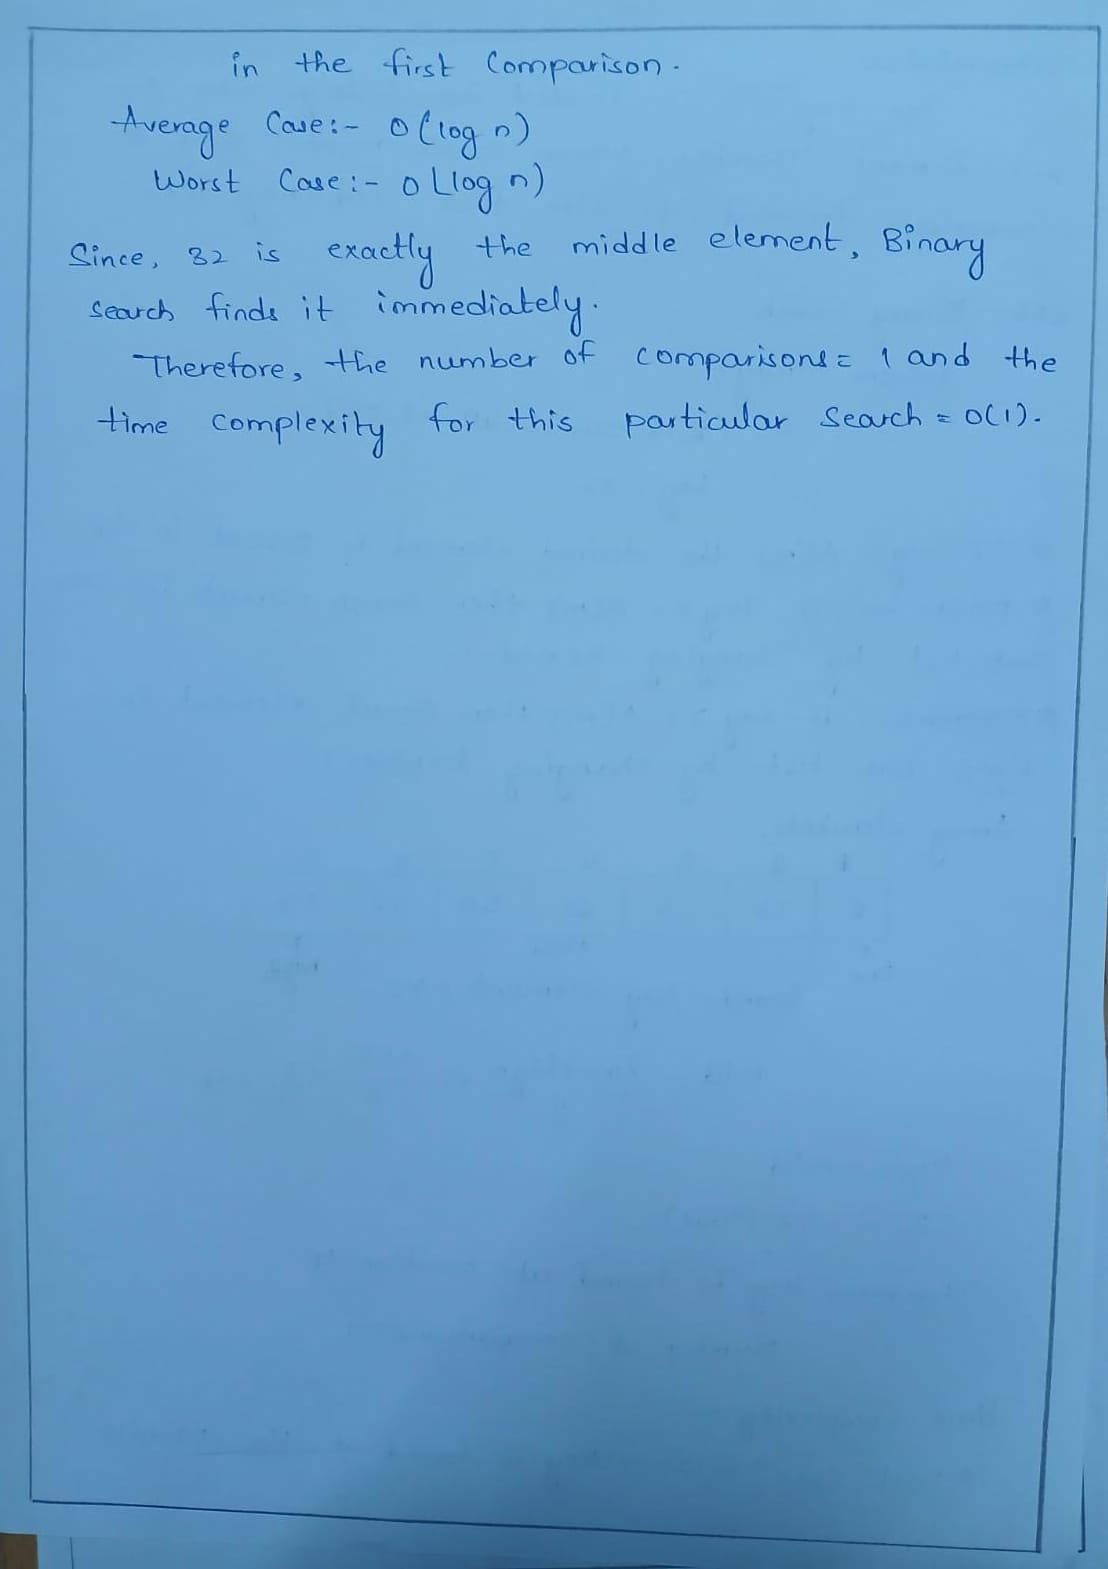 in the first Comparison.
Average Case:- O(log n)
Worst Case:- O(log n)
Since, 32 is exactly the middle element, Binary
search finds it immediately.
Therefore, the number of comparisons = 1 and the
time complexity for this particular Search = O(1).